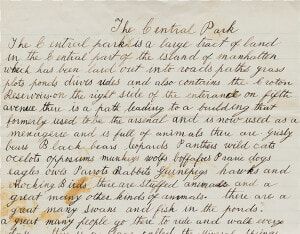 The Central Park
The Central park is a large tract of land
in the Central part of the island of manhatten
which has been laid out into roads paths grass
plots ponds drives rides and also contains the Croton
Reservoir on the right side of the entrance on fifth
avenue there is a path leading to a building that
formerly used to be the arsenal and is now used as a
menagerie and is full of animals there are grisly
bears Black bears leopards Panthers wild cats
ocelots oppossums munkeys wolfs boffalos Praire dogs
eagles owls Parrots Rabbits Guinepigs hawks and
Mocking Birds there are stuffed animals and a
great many other kinds of animals there are a
great many swans and fish in the ponds.
a great many people go there to ride and walk every
called the